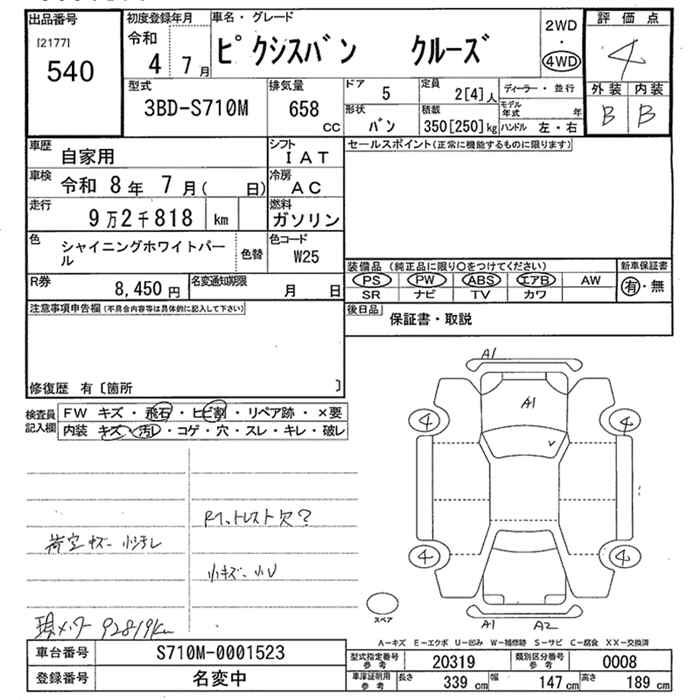 出品番号
[2177]
540
初度登録年月
令和
4 7 月
車名・グレード
ピクシスバン クルーズ
2WD
・
4WD
評価点
4
外装 内装
B B
型式
3BD-S710M
排気量
658
CC
ドア 5
定員 2[4]人
形状 バン
積載 350[250]kg
ディーラー・並行
モデル年式 年
ハンドル 左・右
車歴 自家用
シフト IAT
セールスポイント(正常に機能するものに限ります)
車検 令和 8年 7月( 日)
冷房 AC
走行 9万2千818 km
燃料 ガソリン
色 シャイニングホワイトパール
色替
色コード W25
装備品 (純正品に限り○をつけてください)
新車保証書
PS PW ABS エアB AW
有・無
SR ナビ TV カワ
R券 8,450円
名変通知期限 月 日
後日品 保証書・取説
注意事項申告欄(不具合内容等は具体的に記入して下さい)
修復歴 有〔箇所 〕
検査員記入欄
FW キズ・飛石・ヒビ割・リペア跡・×要
内装 キズ・汚レ・コゲ・穴・スレ・キレ・破レ
A1
A1
4 4
V
4 4
A1 A2
スペア
欠?
小キズ 小U
現メーター 92819km
A-キズ E-エクボ U-凹み W-補修跡 S-サビ C-腐食 XX-交換済
車台番号 S710M-0001523
登録番号 名変中
型式指定番号 参考 20319
類別区分番号 参考 0008
車庫証明用 参考 長さ 339 cm 幅 147 cm 高さ 189 cm